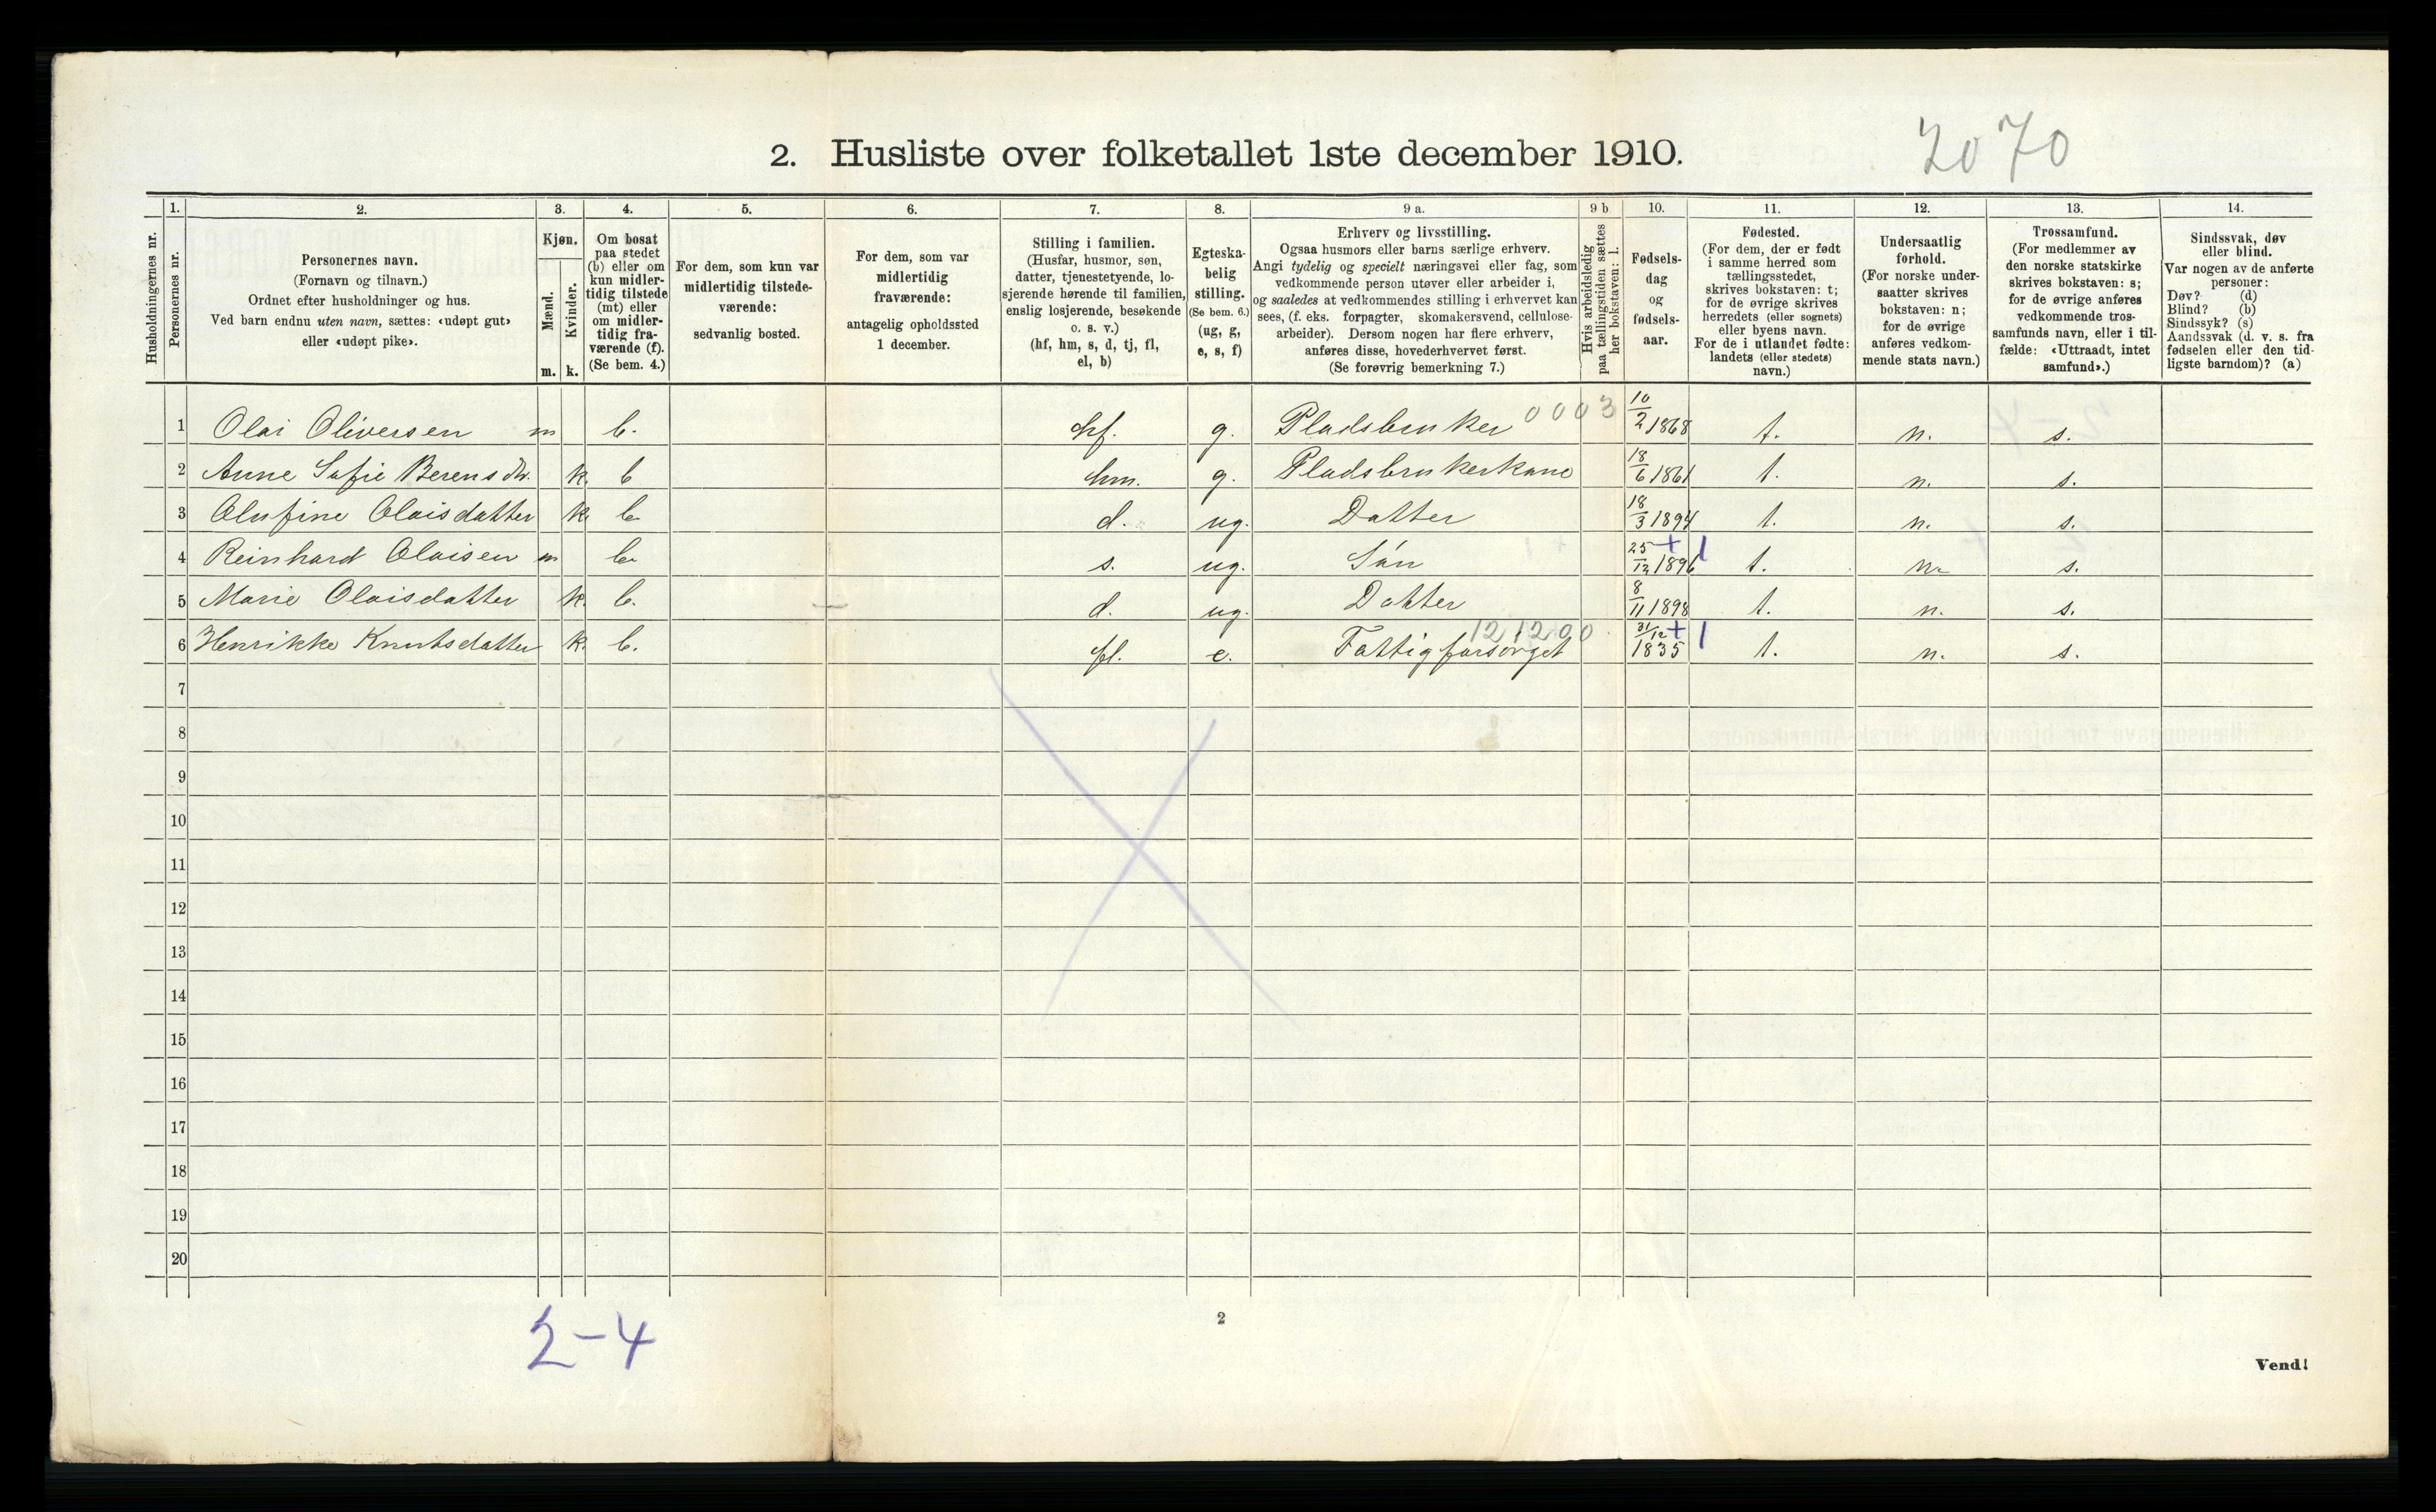 2. Husliste over folketallet 1ste december 1910.
2070
Husholdningernes nr.
1.
Personernes nr.
2.
Personernes navn.
(Fornavn og tilnavn.)
Ordnet efter husholdninger og hus.
Ved barn endnu uten navn, sættes: «udøpt gut»
eller «udøpt pike».
3.
Kjøn.
Mænd.
Kvinder.
m. k.
4.
Om bosat
paa stedet
(b) eller om
kun midler-
tidig tilstede
(mt) eller
om midler-
tidig fra-
værende (f).
(Se bem. 4.)
5.
For dem, som kun var
midlertidig tilstede-
værende:
sedvanlig bosted.
6.
For dem, som var
midlertidig
fraværende:
antagelig opholdssted
1 december.
7.
Stilling i familien.
(Husfar, husmor, søn,
datter, tjenestetyende, lo-
sjerende hørende til familien,
enslig losjerende, besøkende
o. s. v.)
(hf, hm, s, d, tj, fl,
el, b)
8.
Egteska-
belig
stilling.
(Se bem. 6.)
(ug, g,
e, s, f)
9 a.
Erhverv og livsstilling.
Ogsaa husmors eller barns særlige erhverv.
Angi tydelig og specielt næringsvei eller fag, som
vedkommende person utøver eller arbeider i,
og saaledes at vedkommendes stilling i erhvervet kan
sees, (f. eks. forpagter, skomakersvend, cellulose-
arbeider). Dersom nogen har flere erhverv,
anføres disse, hovederhvervet først.
(Se forøvrig bemerkning 7.)
9 b
Hvis arbeidsledig
paa tællingstiden sættes
her bokstaven: l.
10.
Fødsels-
dag
og
fødsels-
aar.
11.
Fødested.
(For dem, der er født
i samme herred som
tællingsstedet,
skrives bokstaven: t;
for de øvrige skrives
herredets (eller sognets)
eller byens navn.
For de i utlandet fødte:
landets (eller stedets)
navn.)
12.
Undersaatlig
forhold.
(For norske under-
saatter skrives
bokstaven: n;
for de øvrige
anføres vedkom-
mende stats navn.)
13.
Trossamfund.
(For medlemmer av
den norske statskirke
skrives bokstaven: s;
for de øvrige anføres
vedkommende tros-
samfunds navn, eller i til-
fælde: «Uttraadt, intet
samfund».)
14.
Sindssvak, døv
eller blind.
Var nogen av de anførte
personer:
Døv? (d)
Blind? (b)
Sindssyk? (s)
Aandssvak (d. v. s. fra
fødselen eller den tid-
ligste barndom)? (a)
1 Olai Oliversen m b. hf. g. Pladsbruker 0003 10/2 1868 t. n. s.
2 Anne Sofie Berensdtr. k. b hm. g. Pladsbrukerkone 18/6 1861 t. n. s.
3 Olufine Olaisdatter k. b. d. ug. Datter 18/3 1894 t. n. s.
4 Reinhard Olaisen m b. s. ug. Søn 25/12 1896 + 1 t. n. s.
5 Marie Olaisdatter k. b. d. ug. Datter 8/11 1898 t. n. s.
6 Henrikke Knutsdatter k. b. fl. e. Fattigforsørget 121200 31/12 1835 + 1 t. n. s.
7
8
9
10
11
12
13
14
15
16
17
18
19
20
2-4
2
Vend!